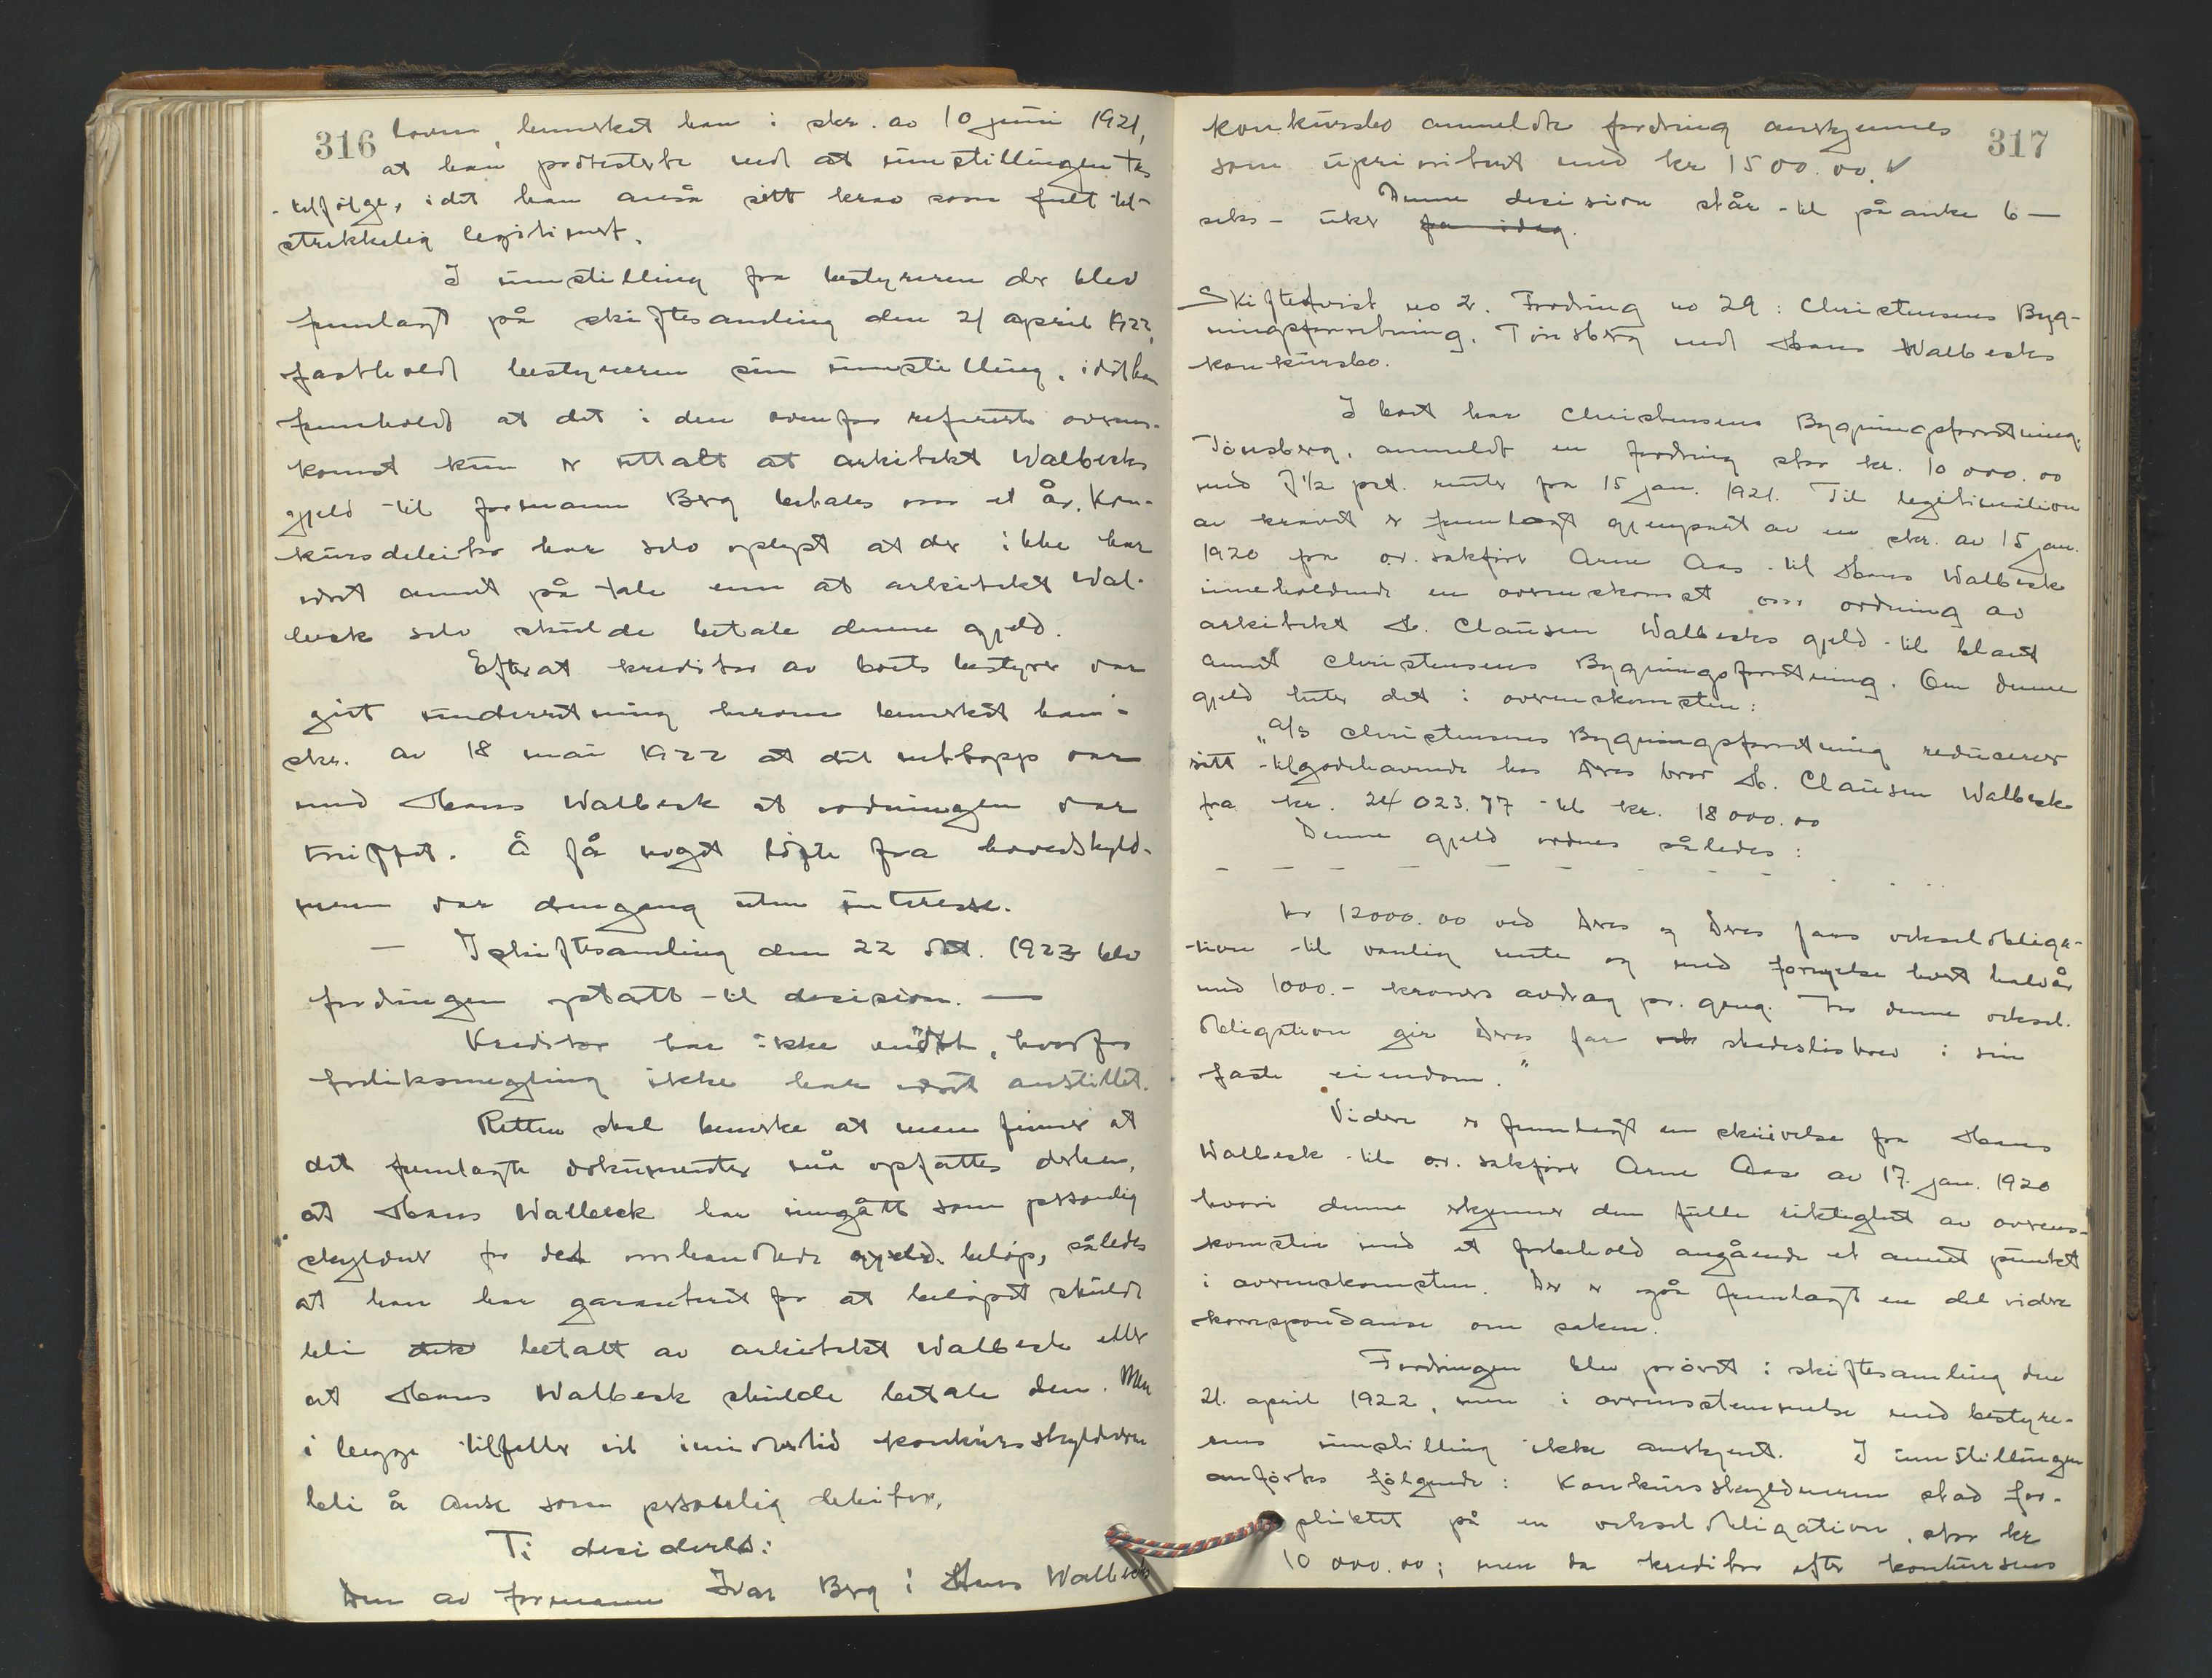 316
loven, bemerket han i skr. av 10 juni 1921,
at han protesterte ved at innstillingen tas
tilfølge, idet han anså sitt krav som fullt til-
strekkelig legitimert.
I innstilling fra bestyreren der blev
fremlagt på skiftesamling den 21 april 1922,
fastholdt bestyreren sin innstilling, idet han
fremholdt at det i den ovenfor refererte overens-
komst kun er uttalt at arkitekt Walbecks
gjeld til formann Berg betales om et år. Kon-
kursdebitor har selv oplyst at der ikke har
vært annet på tale enn at arkitekt Wal-
beck selv skulde betale denne gjeld.
Efterat kreditor av boets bestyrer var
gitt underretning herom bemerket han i
skr. av 18 mai 1922 at det nettopp var
med Hans Walbeck at ordningen var
truffet. Å få noget løfte fra hovedskyld-
neren var dengang uten interesse.
— I skiftesamling den 22 okt. 1923 blev
fordringen optatt til decision. —
Kreditor har ikke møtt, hvorfor
forliksmegling ikke har vært anstillet.
Retten skal bemerke at men finner at
det fremlagte dokumenter må opfattes derhen,
at Hans Walbeck har inngått som personlig
skyldner for det omhandlede gjeld. beløp, således
at han har garantert for at beløpet skulde
bli det betalt av arkitekt Walbeck eller
at Hans Walbeck skulde betale den. Men
i begge tilfeller vil imidlertid konkursskyldneren
bli å anse som personlig debitor.
Ti decideres:
Den av formann Ivar Berg i Hans Walbecks
317
konkursbo anmeldte fordring anerkjennes
som uprioritert med kr 1500.00. ✓
Denne decision står til påanke 6 —
seks - uker fra idag.
Skiftetvist no 2. Fordring no 29: Christensens Byg-
ningsforretning, Tønsberg ved Hans Walbecks
konkursbo.
I boet har Christensens Bygningsforretning,
Tønsberg, anmeldt en fordring stor kr. 10 000.00
med 7½ pct. renter fra 15 jan. 1921. Til legitimation
av kravet er fremlagt gjenpart av en skr. av 15 jan.
1920 fra o.r. sakfører Arne Aas til Hans Walbeck
inneholdende en overenskomst om ordning av
arkitekt H. Clausen Walbecks gjeld til blant
annet Christensens Bygningsforretning. Om denne
gjeld heter det i overenskomsten:
„A/S Christensens Bygningsforretning reducerer
sitt tilgodehavende hos Deres bror H. Clausen Walbeck
fra kr. 24 023.77 til kr. 18 000.00
Denne gjeld ordnes således:
- - - - - - - - - - - -
kr 12000.00 ved Deres og Deres fars vekselobliga-
tion til vanlig rente og med fornyelse hvert halvår
med 1000.- kroners avdrag pr. gang. For denne veksel-
obligation gir Deres far skadesløsbrev i sin
faste eiendom."
Videre er fremlagt en skrivelse fra Hans
Walbeck til o.r. sakfører Arne Aas av 17. jan. 1920
hvori denne erkjenner den fulle riktighet av overens-
komsten med et forbehold angående et annet punkt
i overenskomsten. Der er også fremlagt en del videre
korrespondanse om saken.
Fordringen blev prøvet i skiftesamling den
21. april 1922, men i overensstemmelse med bestyre-
rens innstilling ikke anerkjent. I innstillingen
anførtes følgende: Konkursskyldneren stod for-
pliktet på en vekselobligation, stor kr
10 000.00; men da kreditor efter konkursens